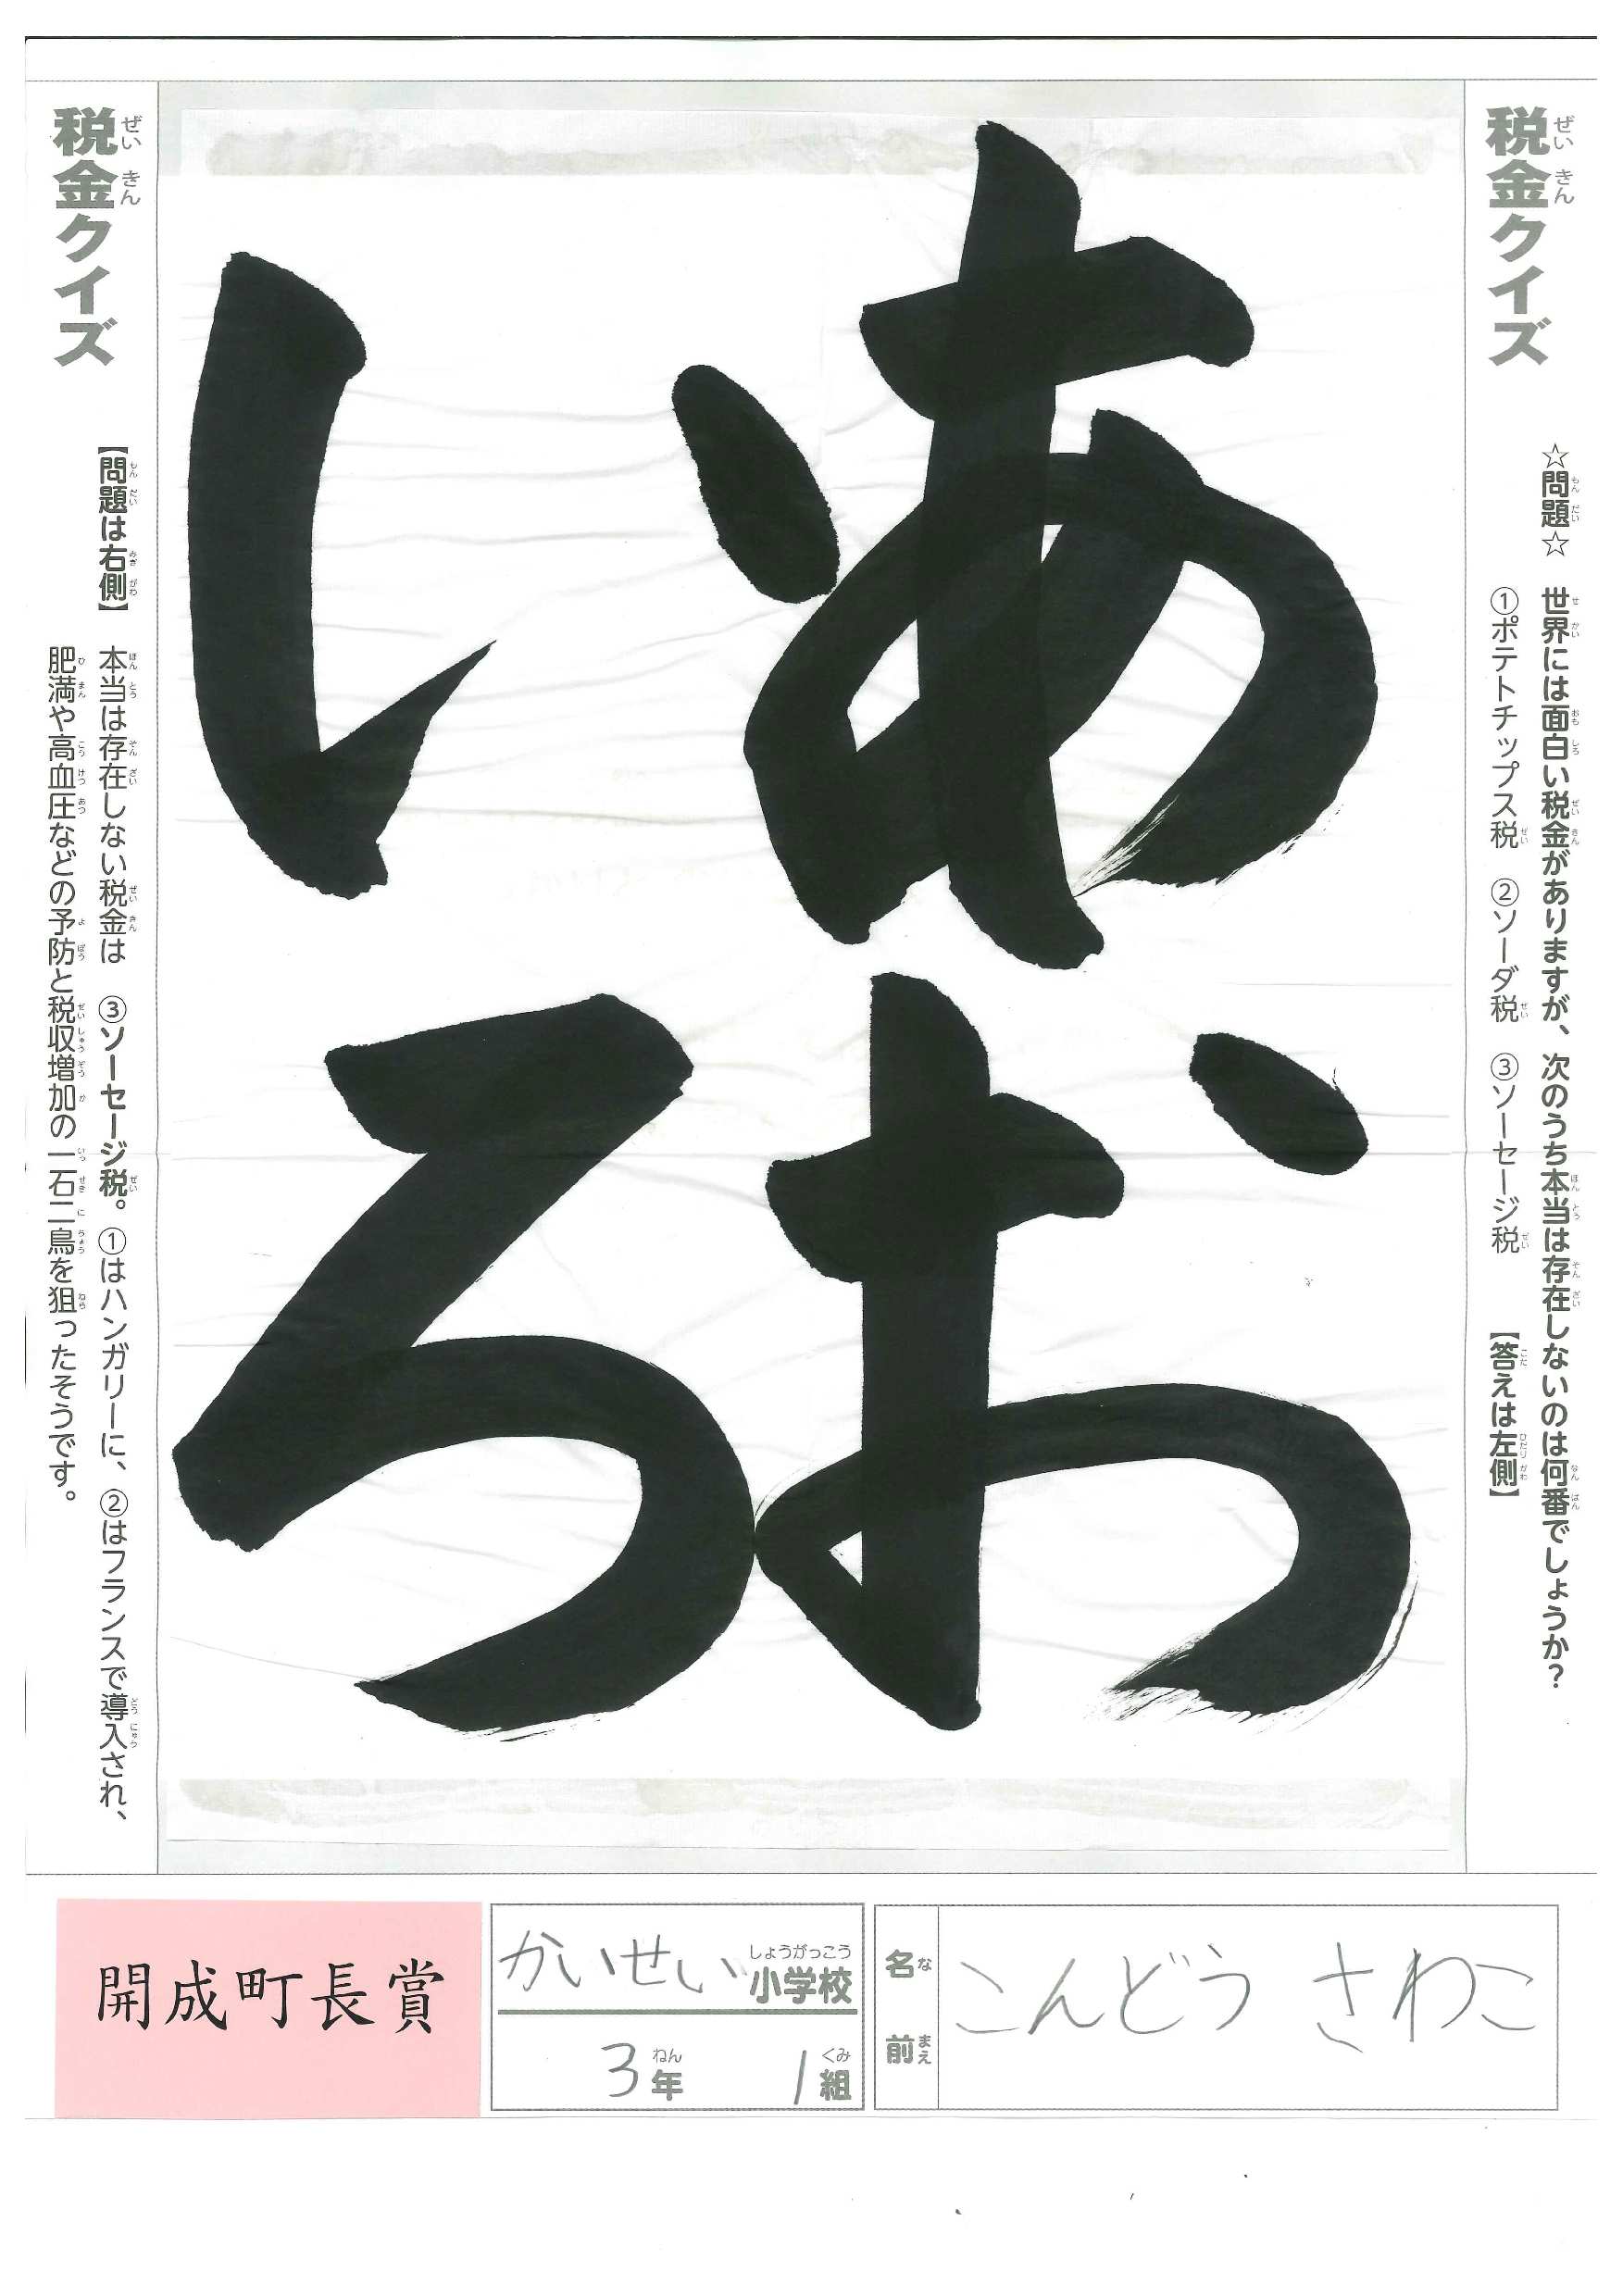 税金クイズ
☆問題☆ 世界には面白い税金がありますが、次のうち本当は存在しないのは何番でしょうか?
①ポテトチップス税 ②ソーダ税 ③ソーセージ税 【答えは左側】
あお
いろ
税金クイズ
【問題は右側】 本当は存在しない税金は ③ソーセージ税。①はハンガリーに、②はフランスで導入され、
肥満や高血圧などの予防と税収増加の一石二鳥を狙ったそうです。
開成町長賞
かいせい小学校
3年 1組
名前 こんどう さわこ